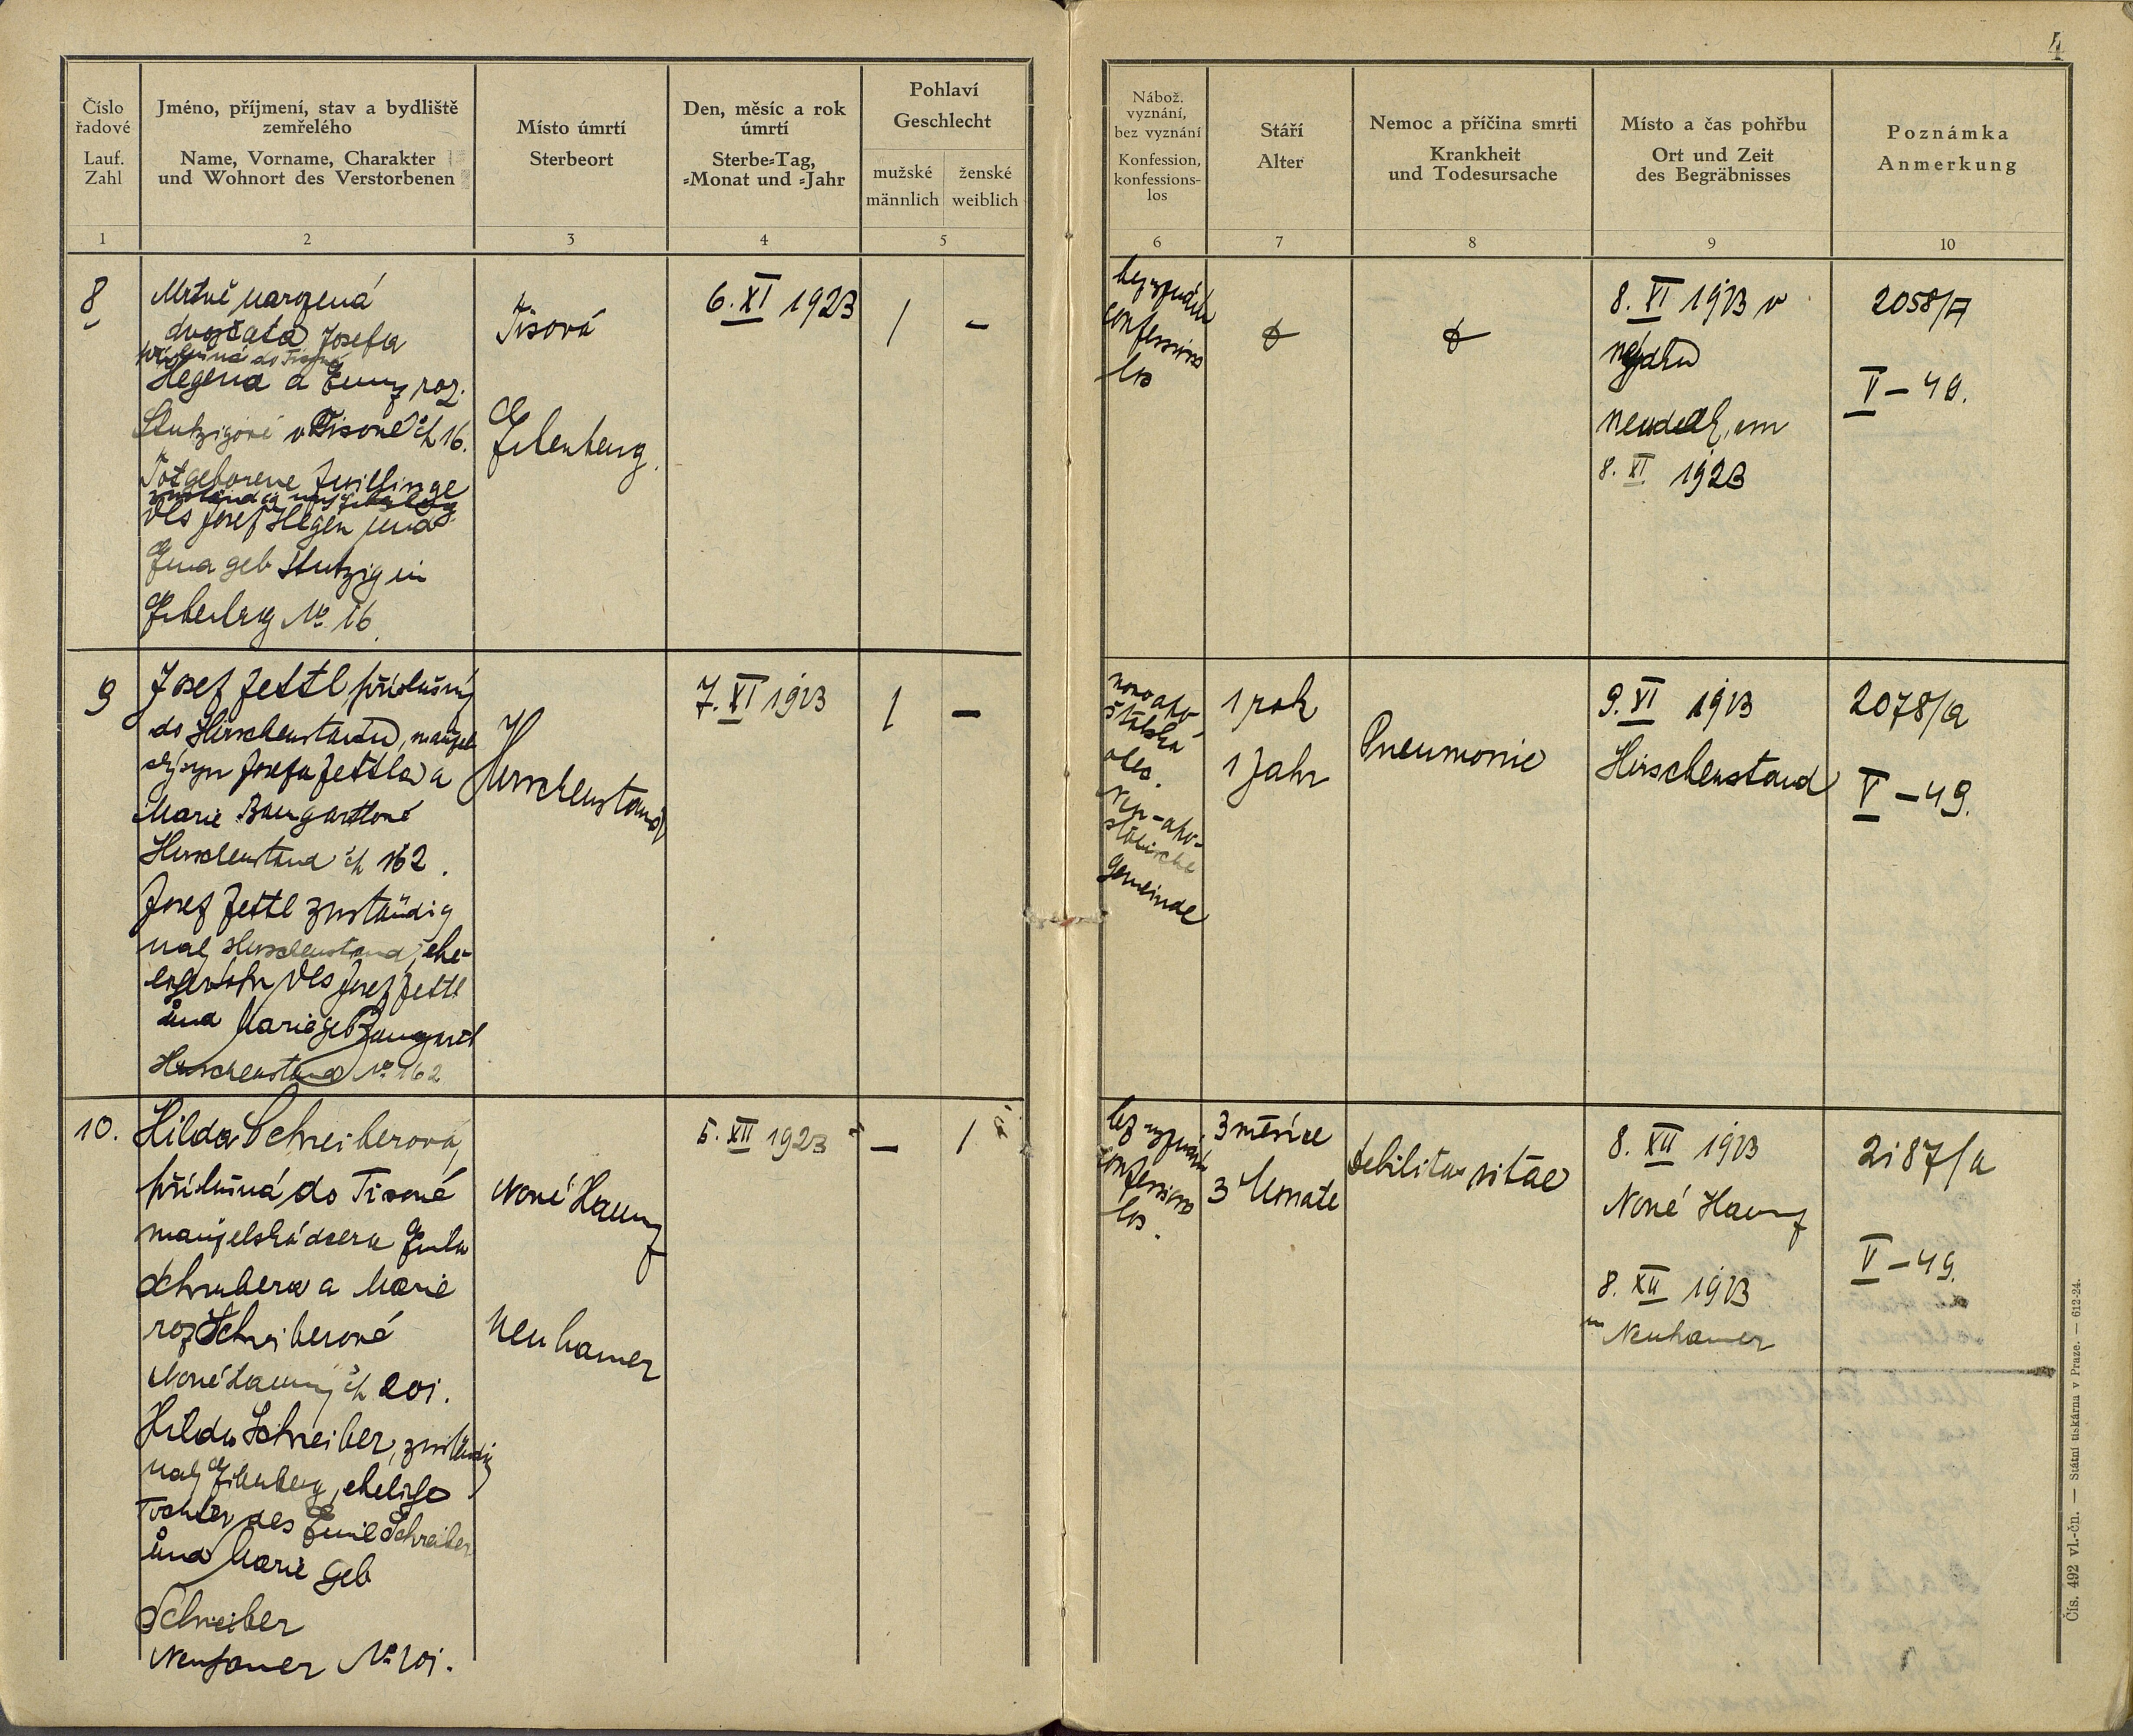 4
Číslo
řadové
Lauf.
Zahl
Jméno, příjmení, stav a bydliště
zemřelého
Name, Vorname, Charakter
und Wohnort des Verstorbenen
Místo úmrtí
Sterbeort
Den, měsíc a rok
úmrtí
Sterbe-Tag,
-Monat und -Jahr
Pohlaví
Geschlecht
mužské
männlich
ženské
weiblich
Nábož.
vyznání,
bez vyznání
Konfession,
konfessions-
los
Stáří
Alter
Nemoc a příčina smrti
Krankheit
und Todesursache
Místo a čas pohřbu
Ort und Zeit
des Begräbnisses
Poznámka
Anmerkung
1
2
3
4
5
6
7
8
9
10
8
Mrtvě narozená
dvojčata Josefa
příslušná do Tisové
Hegena a Emmy roz.
Stutzigové v Tisové čh 16.
Totgeborene Zwillinge
des Josef Hegen und
geb Stutzig in
No 16.
Tisová
6. XI 1923
1
-
bez vyznání
confessions
los
8. XI 1923 v
Nejdku
Neudek, am
8. XI. 1923
2058/A
V - 49.
9
Josef Zettl příslušný
do Hirschenstandu, manžel
ský syn Josefa Zettla a
Marie Baumgartlové
Hirschenstand čh 162.
Josef Zettl zuständig
nach Hirschenstand, ehe-
licher Sohn des Josef Zettl
und Marie geb Baumgartl
Hirschenstand No 162
Hirschenstand
7. XI 1923
1
-
novoapo
štolská
obec.
Neu-apo-
stolische
Gemeinde
1 rok
1 Jahr
Pneumonie
9. XI 1923
Hirschenstand
2078/a
V - 49.
10.
Hilda Schreiberová,
příslušná do Tisové
manželská dcera Emila
Schreibera a Marie
roz Schreiberové
Nové Hamry čh 201.
Hilda Schreiber, zuständig
nach Eibenberg, eheliche
Tochter des Emil Schreiber
und Marie geb
Schreiber
Neuhamer No 201.
Nové Hamry
Neuhamer
5. XII 1923
-
1
bez vyznání
confessions
los.
3 měsíce
3 Monate
debilitas vitae
8. XII 1923
Nové Hamry
8. XII 1923
in Neuhamer
2187/a
V - 49.
Čís. 492 vl.-čn. — Státní tiskárna v Praze. — 612-24.